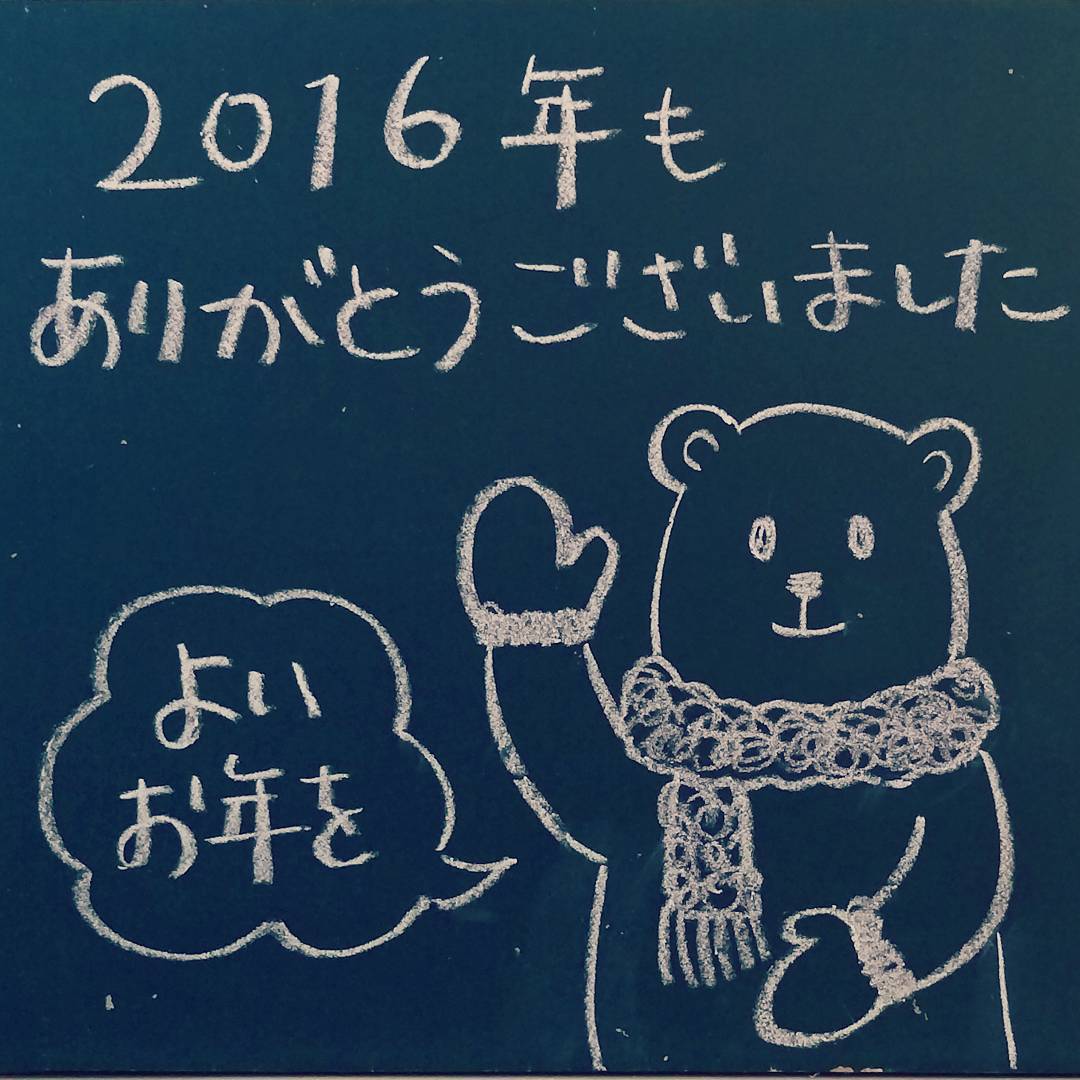 2016年も
ありがとうございました
よい
お年を